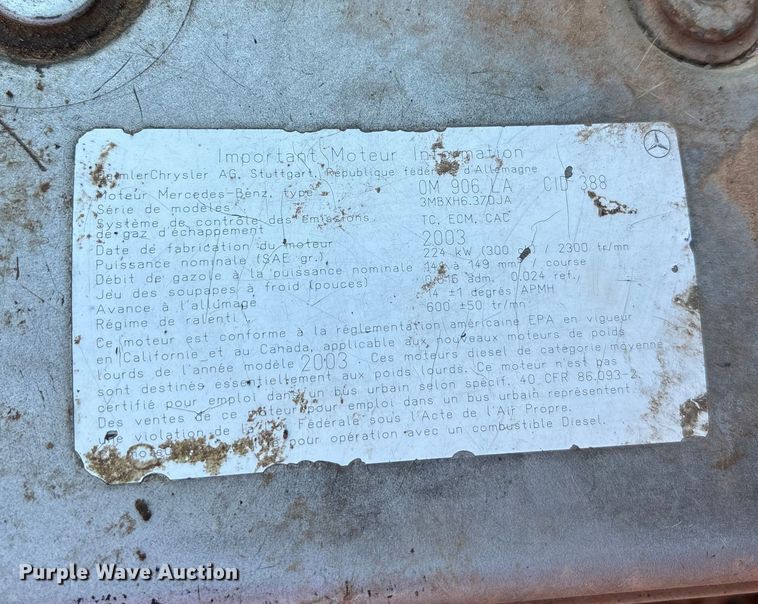 Important Moteur Information
DaimlerChrysler AG, Stuttgart, République fédérale d'Allemagne
Moteur Mercedes-Benz, type OM 906 LA CID 388
Série de modèles 3MBXH6.37DJA
Système de contrôle des émissions
de gaz d'échappement TC, ECM, CAC
Date de fabrication du moteur 2003
Puissance nominale (SAE gr.) 224 kW (300 / 2300 tr/mn
Débit de gazole à la puissance nominale à 149 mm / course
Jeu des soupapes à froid (pouces) 0.016 adm. 0.024 ref.
Avance à l'allumage 14 ±1 degrés APMH
Régime de ralenti 600 ±50 tr/mn
Ce moteur est conforme à la réglementation américaine EPA en vigueur
en Californie et au Canada, applicable aux nouveaux moteurs de poids
lourds de l'année modèle 2003. Ces moteurs diesel de catégorie moyenne
sont destinés essentiellement aux poids lourds. Ce moteur n'est pas
certifié pour emploi dans un bus urbain selon spécif. 40 CFR 86.093-2.
Des ventes de ce moteur pour emploi dans un bus urbain représentent
une violation de la Fédérale sous l'Acte de l'Air Propre.
pour opération avec un combustible Diesel.
Purple Wave Auction